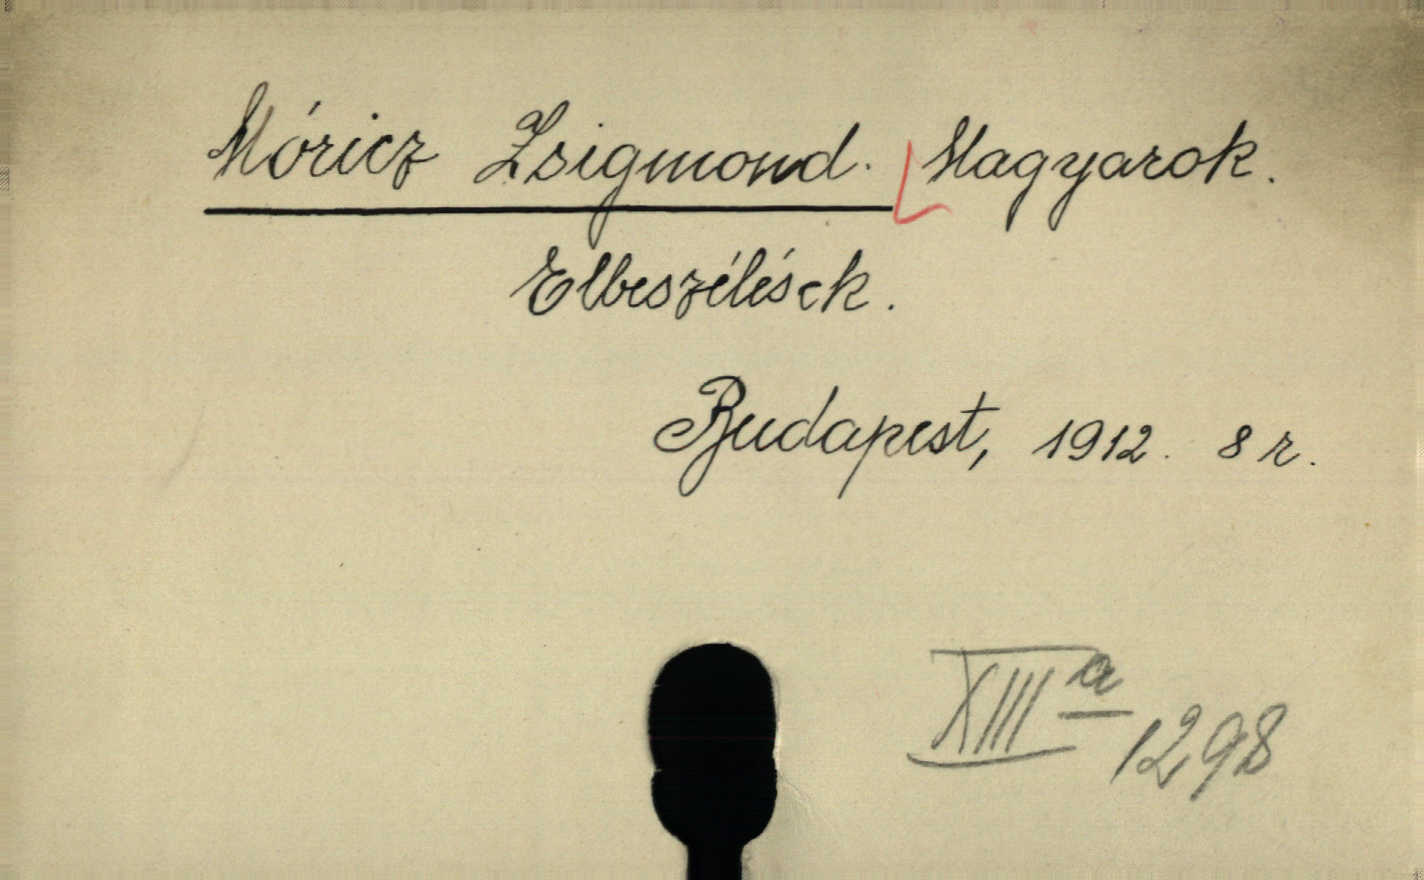 Móricz Zsigmond. Magyarok.
Elbeszélések.
Budapest, 1912. 8 r.
XIII a 1298